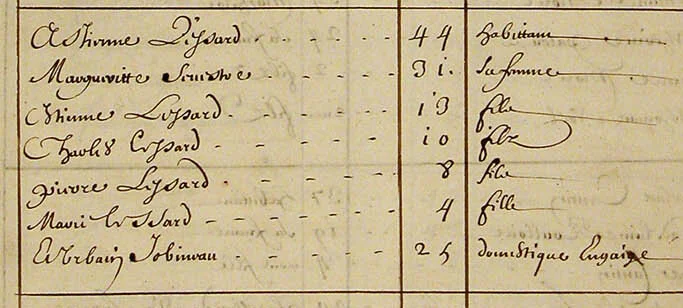 Estienne Lessard 44 habittant
Margueritte Seuestre 31. sa femme
Estienne Lessard 13 filz
Charles Lessard 10 filz
pierre Lessard 8 filz
Marie lessard 4 fille
Vrbain Jobineau 25 domestique Engaigé